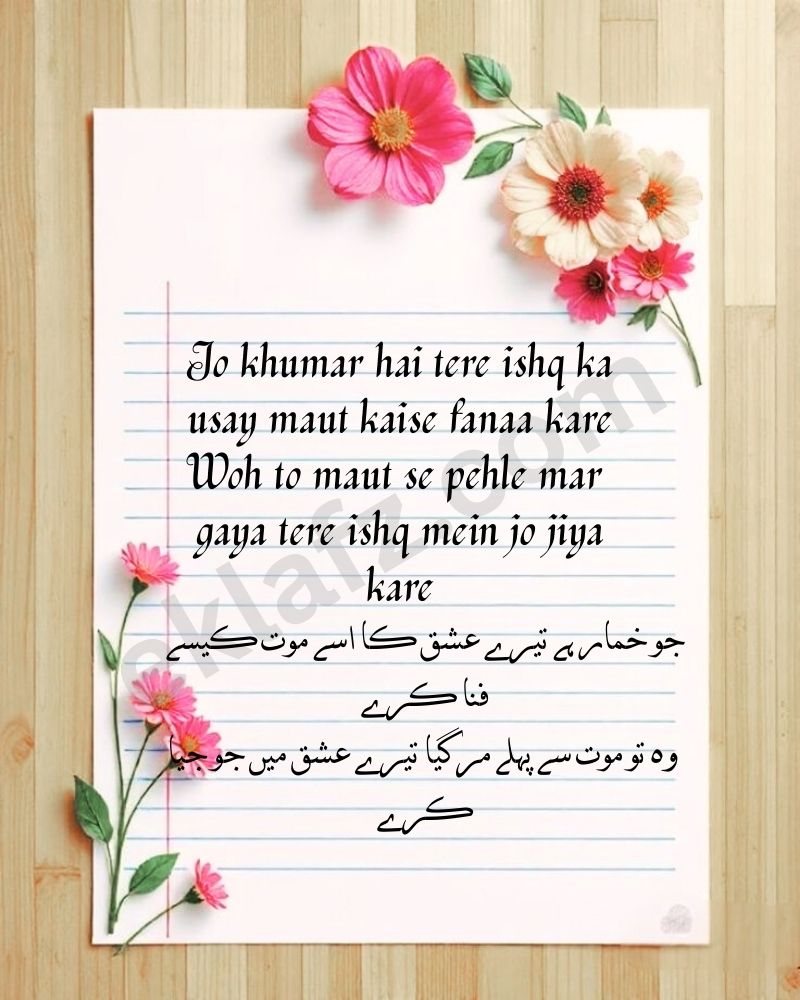 Jo khumar hai tere ishq ka
usay maut kaise fanaa kare
Woh to maut se pehle mar
gaya tere ishq mein jo jiya
kare
جو خمار ہے تیرے عشق کا اسے موت کیسے
فنا کرے
وہ تو موت سے پہلے مر گیا تیرے عشق میں جو جیا
کرے
eklafz.com